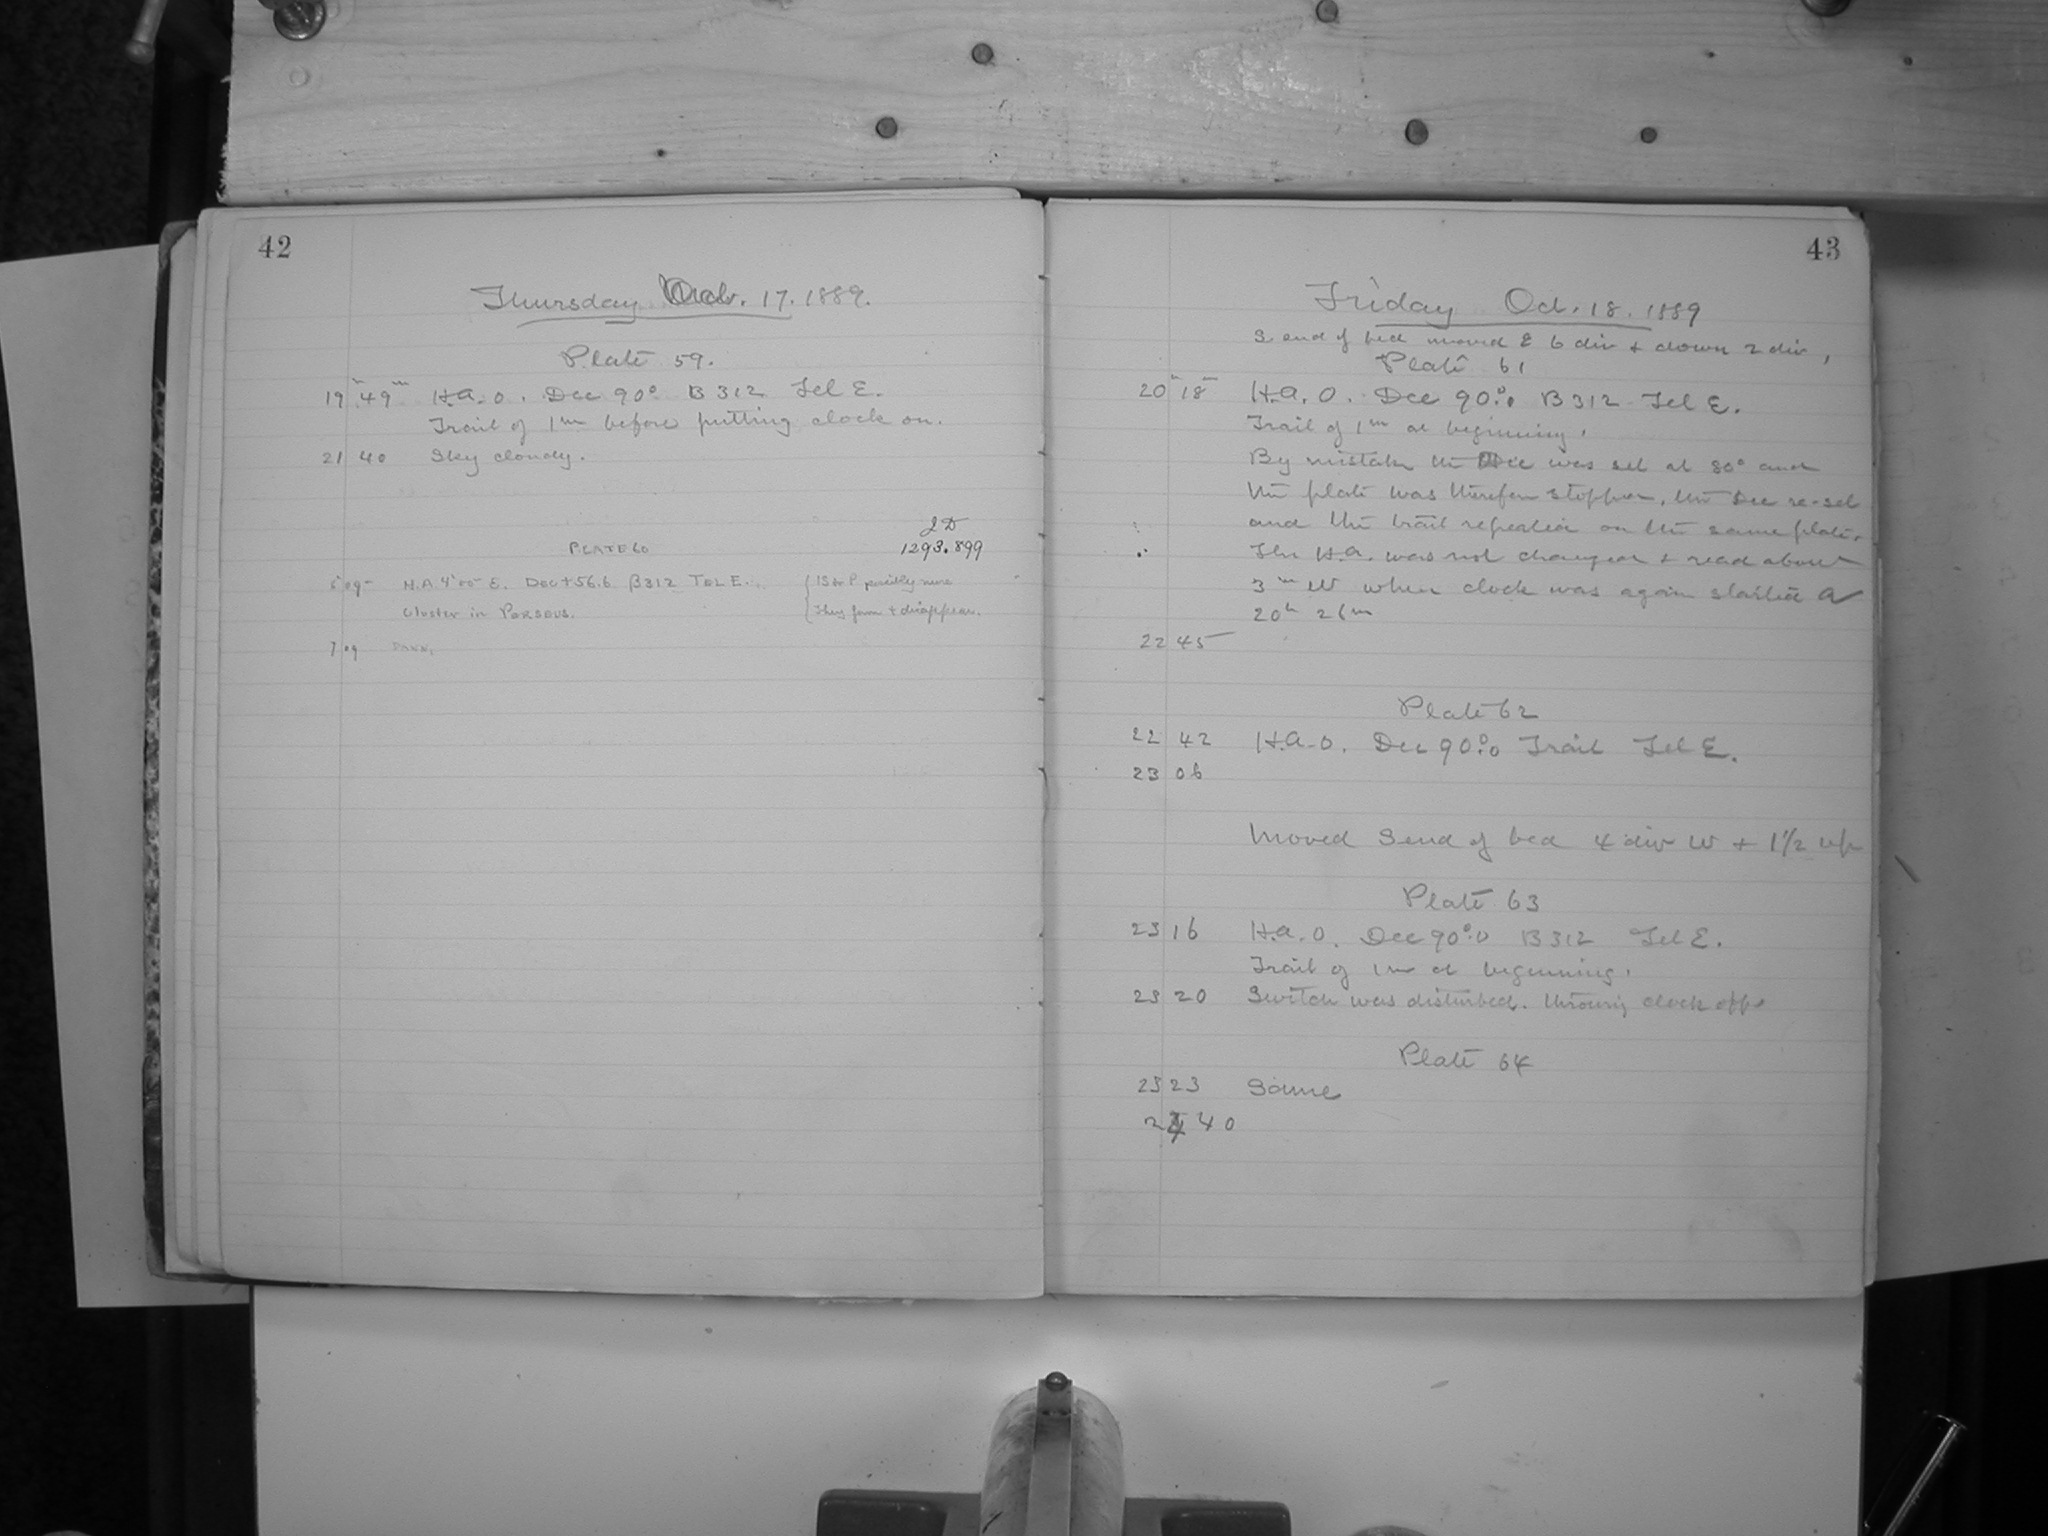 42
Thursday Oct. 17. 1889.
Plate 59.
19h 49m H.A. 0. Dec 90° B 312 Tel E.
Trail of 1m before putting clock on.
21 40 Sky cloudy.
JD
PLATE 60 1293.899
5 09 H.A. 4h 00m E. Dec +56.6 B312 TEL E. { 15 to P possibly more
Cluster in PERSEUS. { They form + disappear.
7 09
43
Friday Oct. 18. 1889
S. end of bed moved E 6 div + down 2 div,
Plate 61
20h 18m H.A. 0. Dec 90°.0 B 312 Tel E.
Trail of 1m at beginning.
By mistake the Dec was set at 80° and
the plate was therefore stopped, the Dec re-set
and the trail repeated on the same plate.
The H.A. was not changed + read about
3m W when clock was again started at
20h 26m
22 45
Plate 62
22 42 H.A. 0. Dec 90°.0 Trail Tel E.
23 06
Moved S end of bed 4 div W + 1 1/2 up
Plate 63
23 16 H.A. 0. Dec 90°.0 B 312 Tel E.
Trail of 1m at beginning.
23 20 Switch was disturbed. throwing clock off.
Plate 64
23 23 Same
24 40